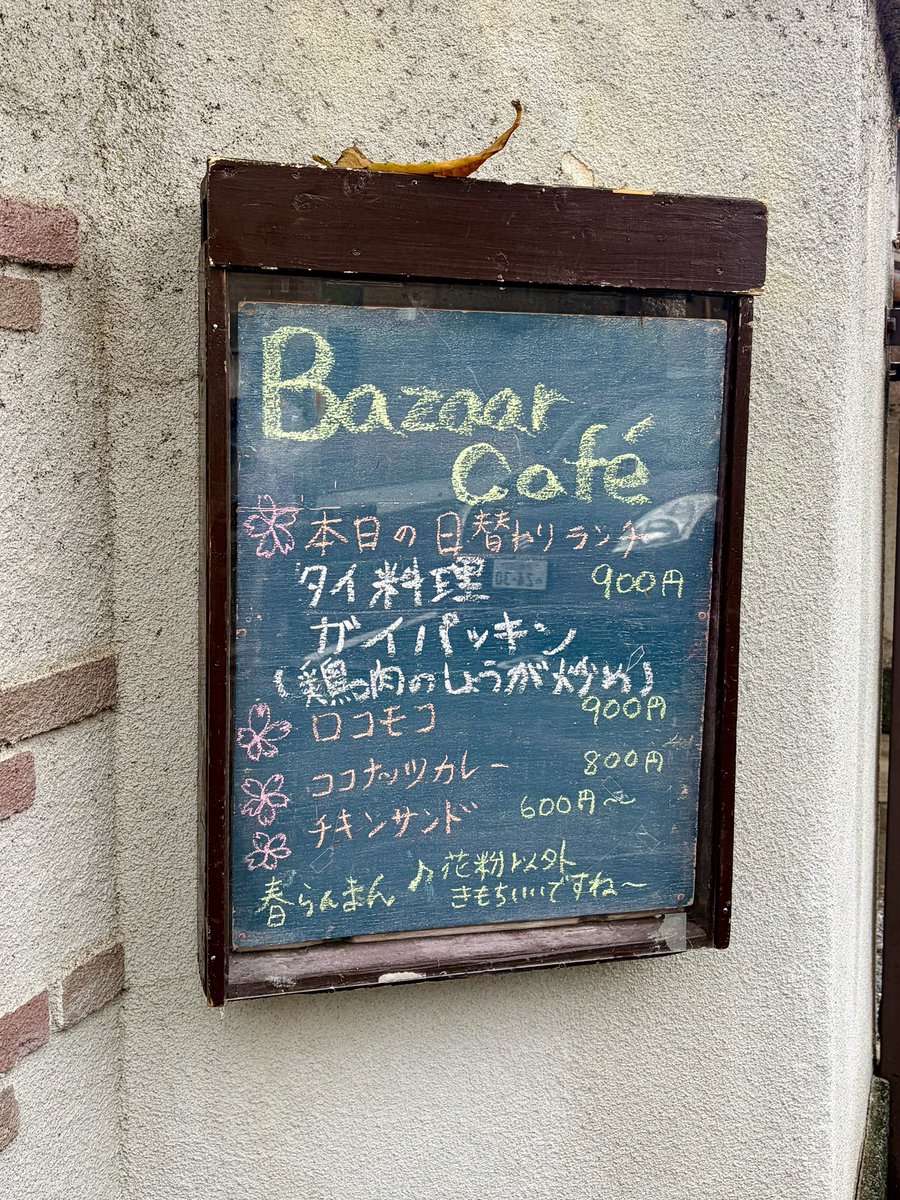 Bazaar
Café
本日の日替わりランチ
タイ料理 900円
ガイパッキン
(鶏肉のしょうが炒め)
ロコモコ 900円
ココナッツカレー 800円
チキンサンド 600円〜
春らんまん♪花粉以外
きもちいいですね〜